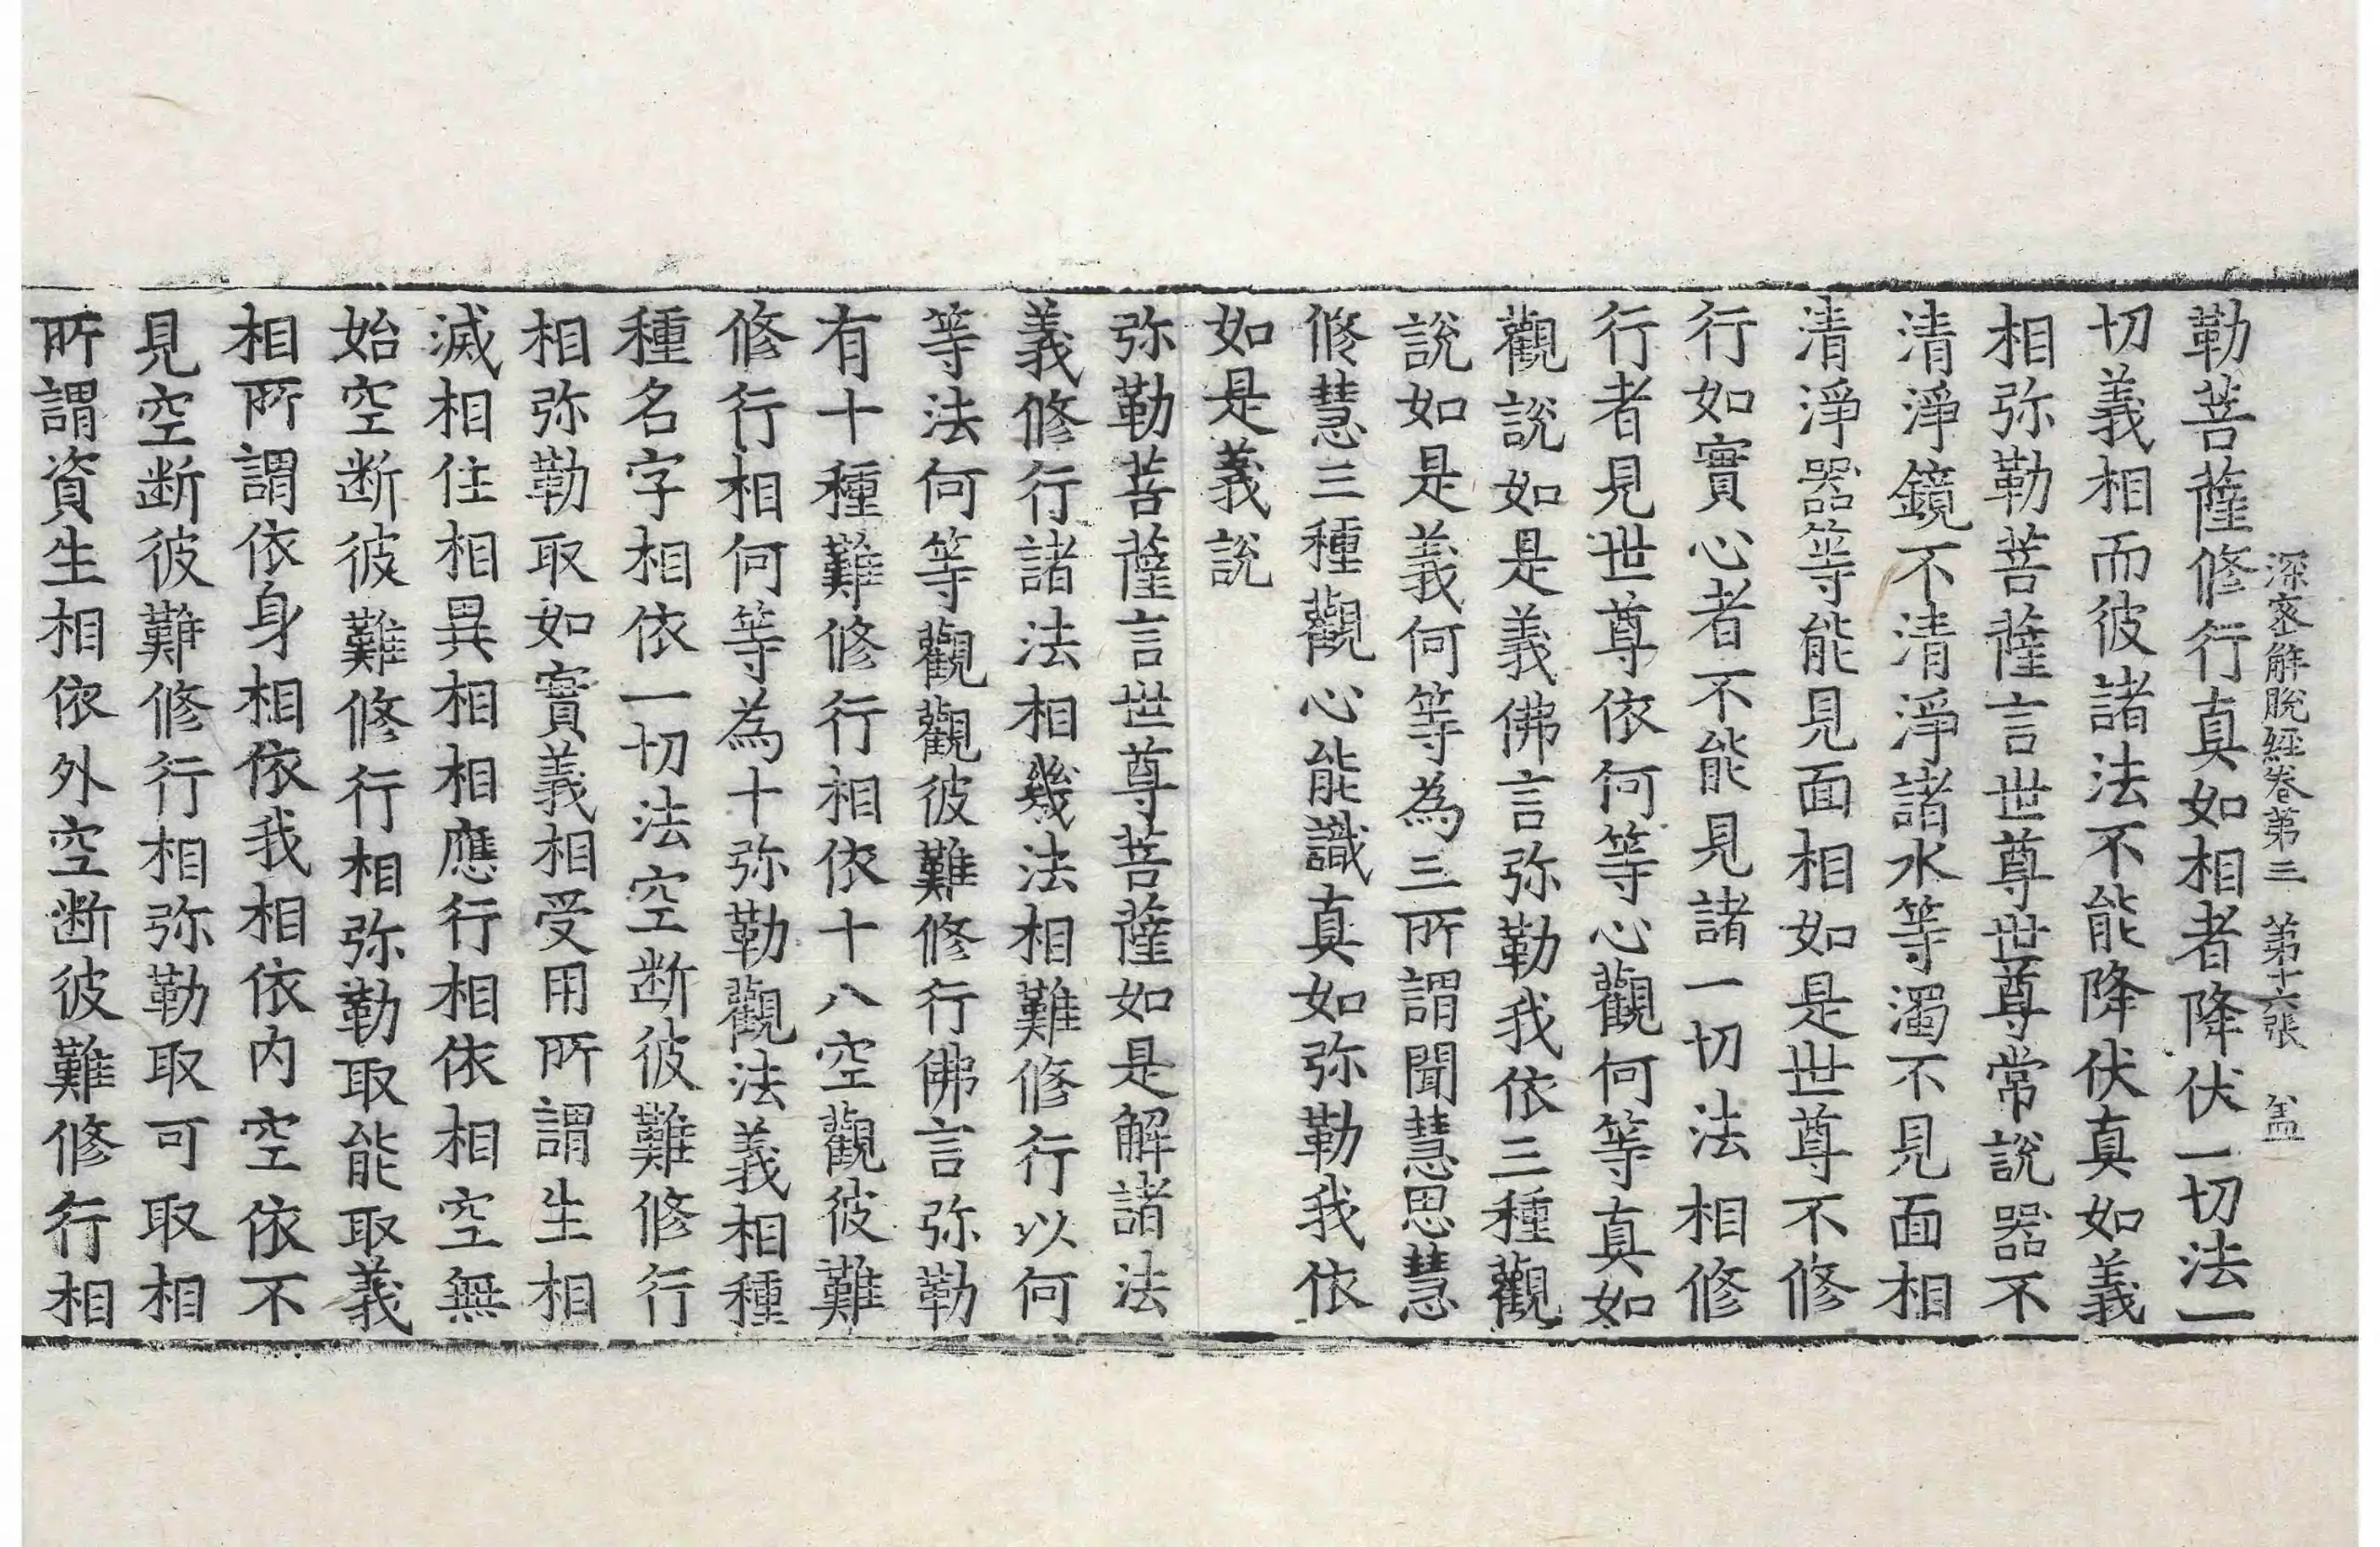 深密解脫經卷第三 第十六張 盖
勒菩薩修行真如相者降伏一切法一
切義相而彼諸法不能降伏真如義
相弥勒菩薩言世尊世尊常說器不
清淨鏡不清淨諸水等濁不見面相
清淨器等能見面相如是世尊不修
行如實心者不能見諸一切法相修
行者見世尊依何等心觀何等真如
觀說如是義佛言弥勒我依三種觀
說如是義何等為三所謂聞慧思慧
修慧三種觀心能識真如弥勒我依
如是義說
弥勒菩薩言世尊菩薩如是解諸法
義修行諸法相幾法相難修行以何
等法何等觀觀彼難修行佛言弥勒
有十種難修行相依十八空觀彼難
修行相何等為十弥勒觀法義相種
種名字相依一切法空断彼難修行
相弥勒取如實義相受用所謂生相
滅相住相異相相應行相依相空無
始空断彼難修行相弥勒取能取義
相所謂依身相依我相依内空依不
見空断彼難修行相弥勒取可取相
所謂資生相依外空断彼難修行相